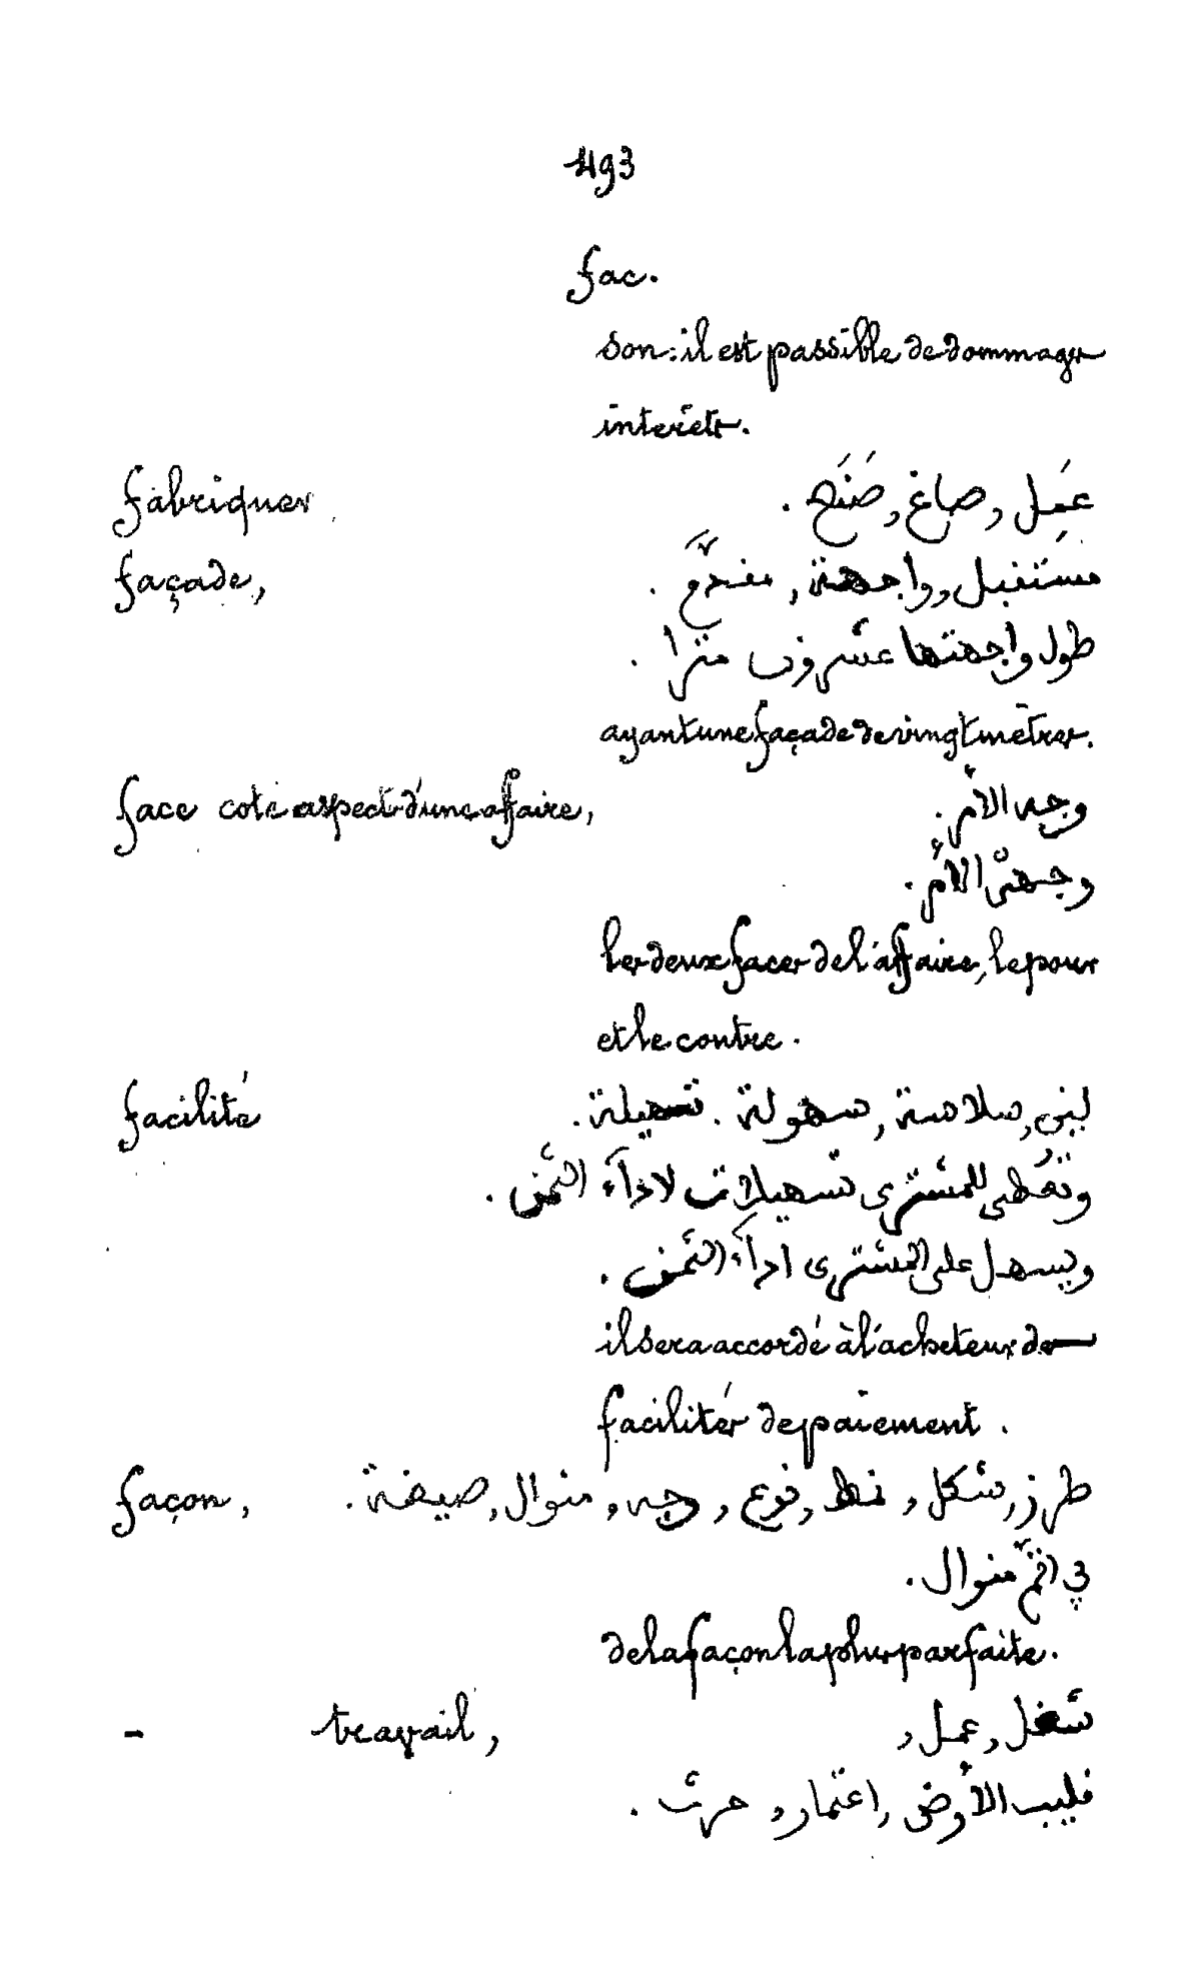 493
fac.
son: il est passible de dommages
interêts.
fabriquer عَمِل, صاغ, صَنَع.
façade, مستقبل, واجهة, مقدَّم.
طول واجهتها عشرون مترا.
ayant une façade de vingt mètres.
face coté aspect d'une affaire, وجه الأمر.
وجهتى الأمر.
les deux faces de l'affaire, le pour
et le contre.
facilité لين, سلاسة, سهولة. تسهيلة.
وتُعطى للمشترى تسهيلات لاداء الثمن.
ويسهل على المشترى اداء الثمن.
il sera accordé à l'acheteur des
facilités de paiement.
façon, طرز, شكل, نمط, نوع, وجه, منوال, صيغة.
في اتمّ منوال.
de la façon la plus parfaite.
- travail, شغل, عمل,
قليب الأرض, اعتمار, حرث.